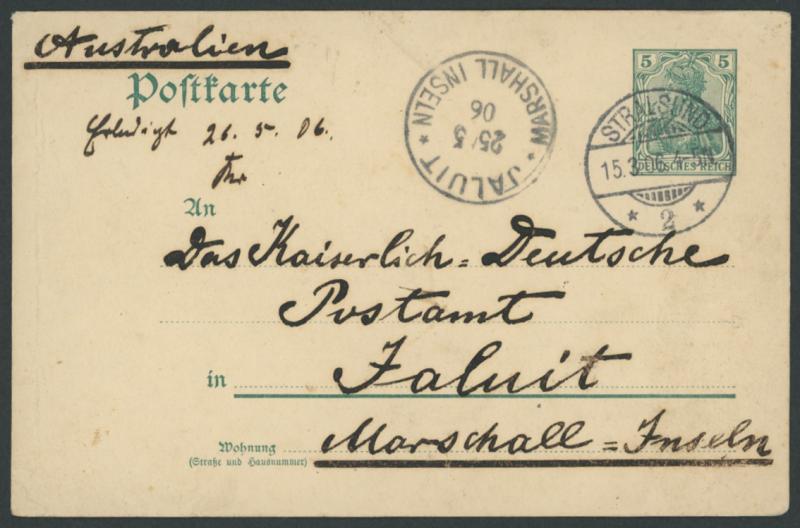 Australien
Postkarte
Erledigt 26. 5. 06.
MARSHALL INSELN
25/5
06
* JALUIT *
5 5
DEUTSCHES REICH
STRALSUND
15.3.06.4-5N
* 2 *
An
Das Kaiserlich=Deutsche
Postamt
in Jaluit
Wohnung
(Straße und Hausnummer)
Marschall=Inseln